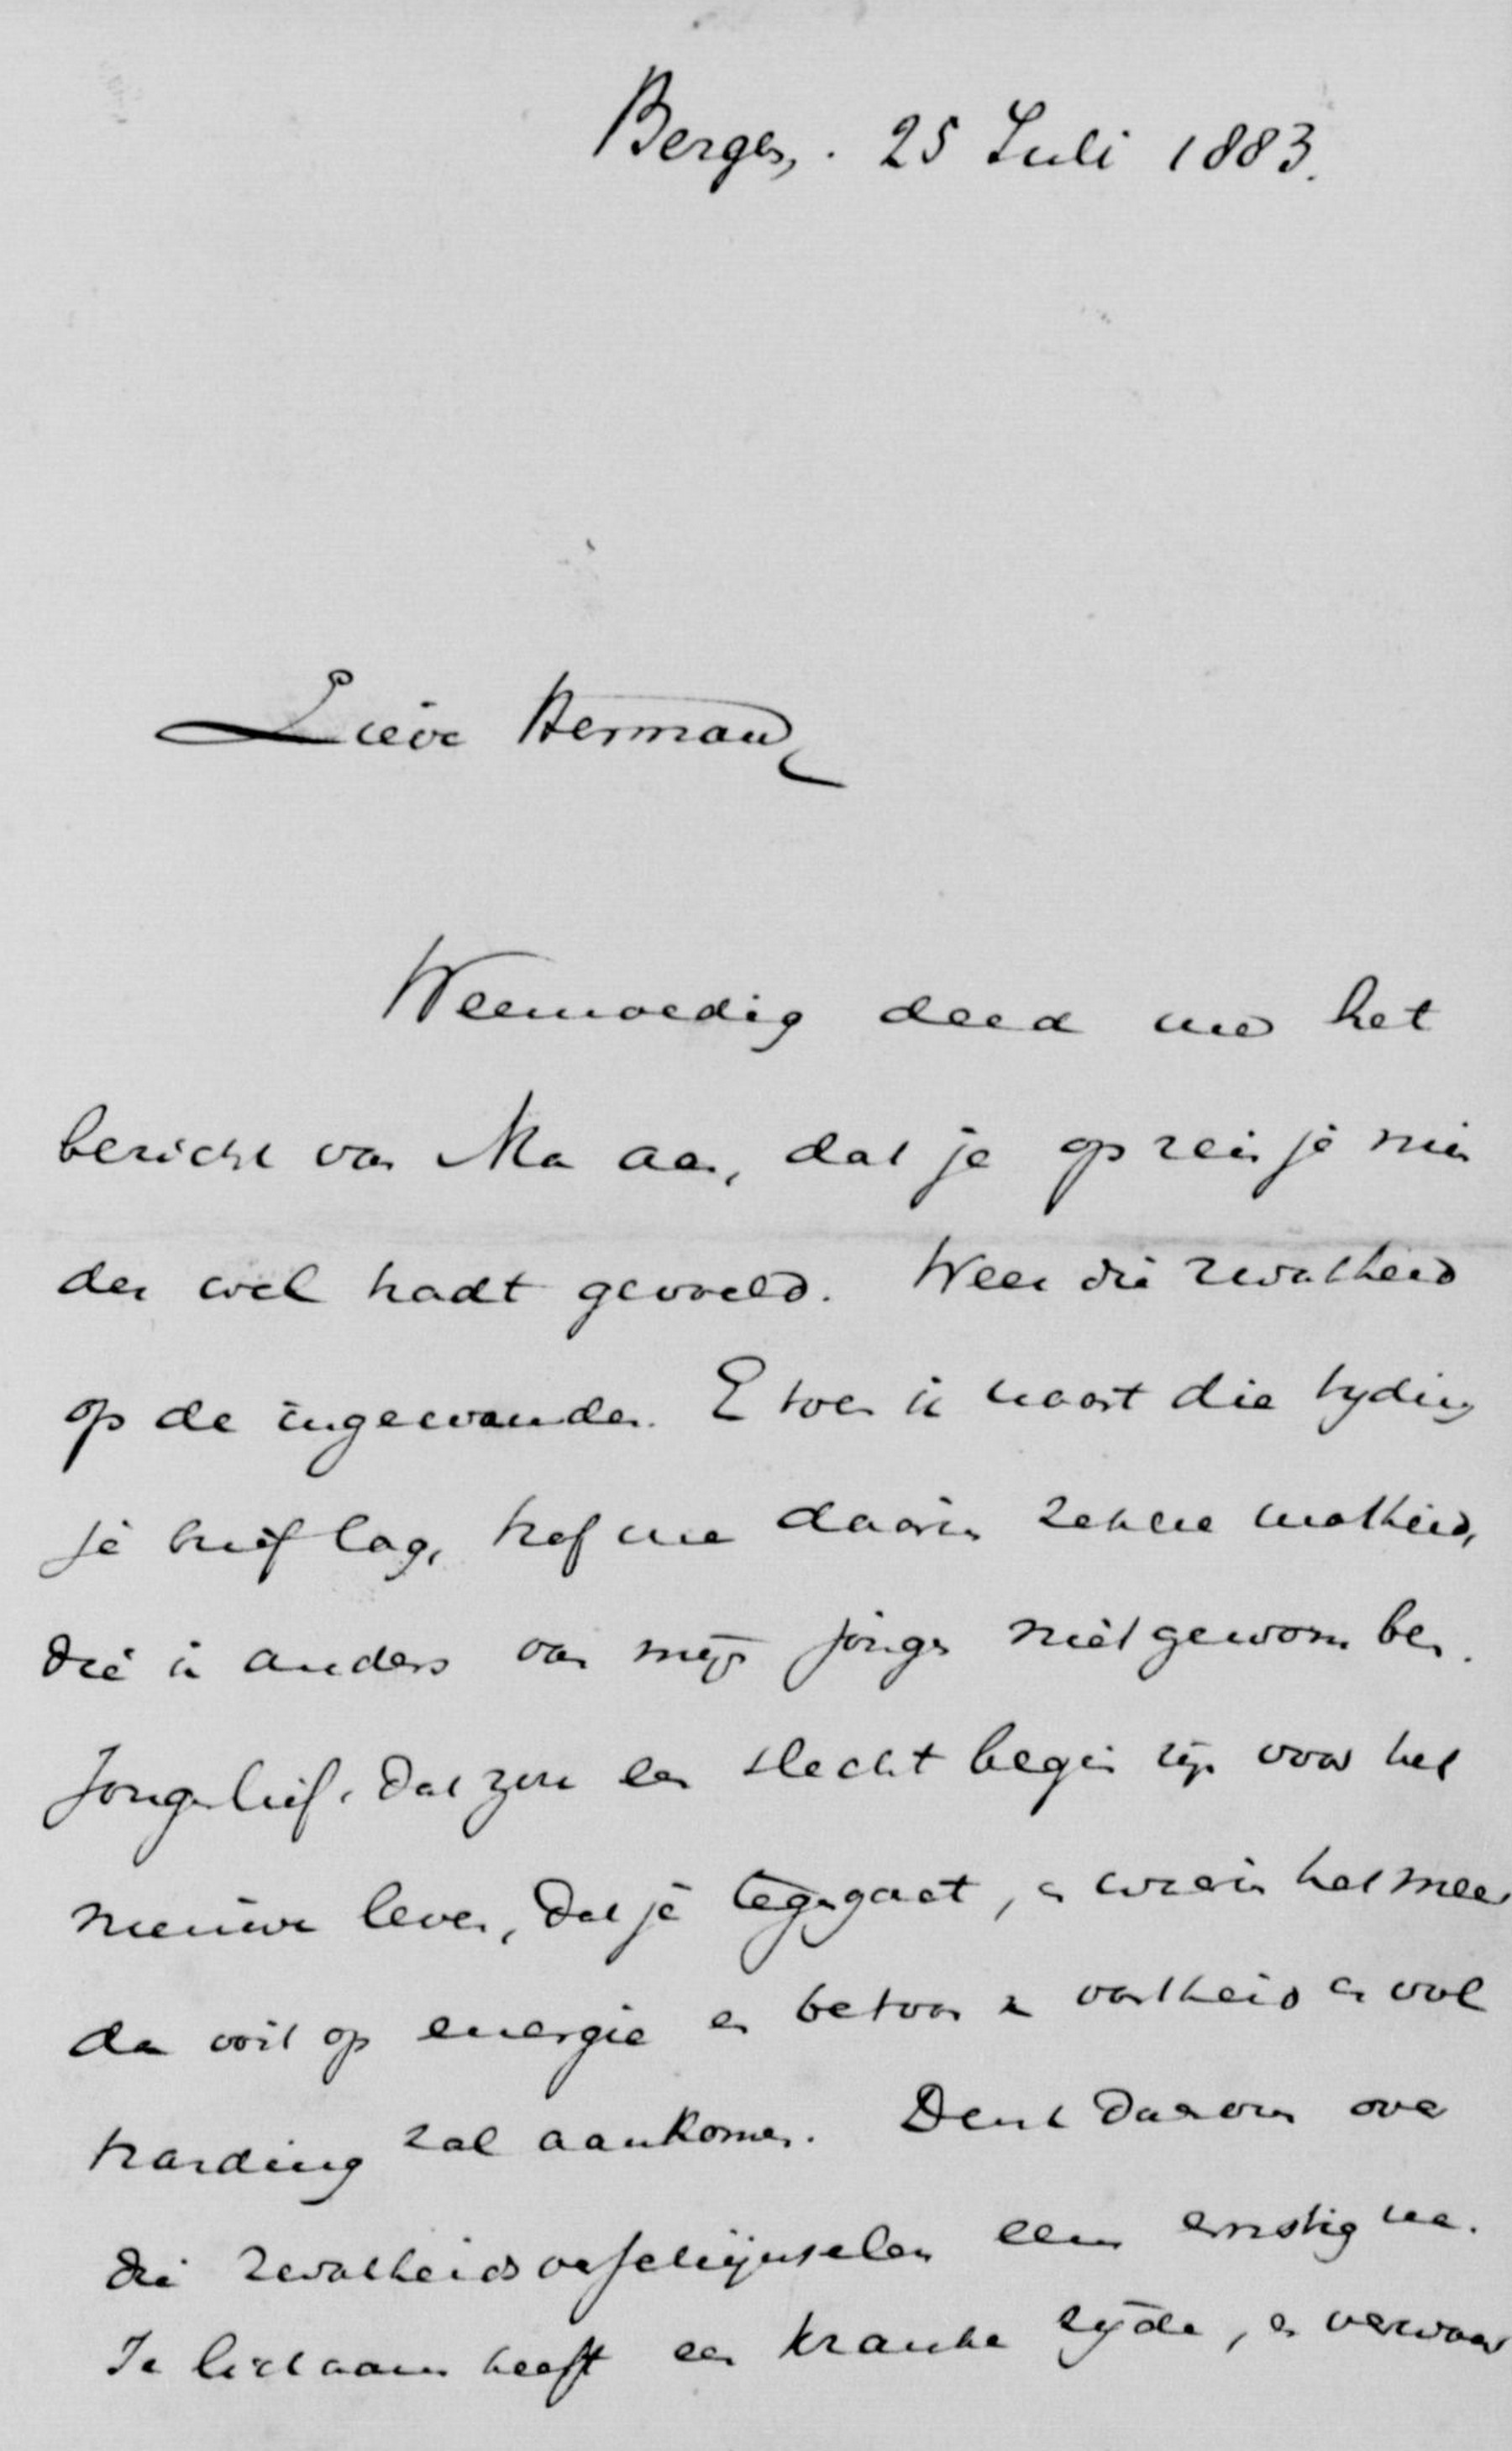 Bergen, 25 Juli 1883.
Lieve Herman
Weemoedig deed me het
bericht van Ma aan, dat je op reis je min
der wel hadt gevoeld. Weer die zwakheid
op de ingewanden. En toen ik naast die tyding
je brief lag, trof me daarin zekere matheid,
die ik anders van mijn jongen niet gewoon ben.
Jongenlief, dat zou een slecht begin zijn voor het
nieuwe leven, dat je tegengaat, en waarin het meer
dan ooit op energie en betoon van vastheid en vol
harding zal aankomen. Denk daarom over
die zwakheidsverschijnselen eens ernstig na.
Je lichaam heeft een kranke zyde, en verwaar